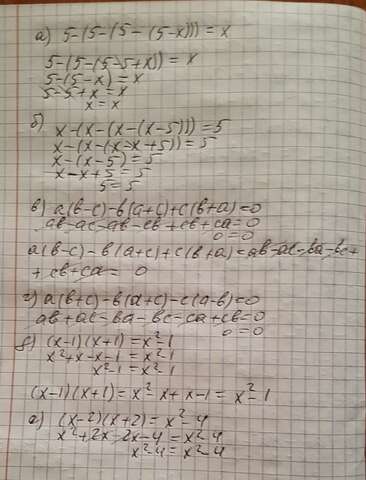 а) 5-(5-(5-(5-x))) = x
5-(5-(5-5+x)) = x
5-(5-x) = x
5-5+x = x
x = x
б) x-(x-(x-(x-5))) = 5
x-(x-(x-x+5)) = 5
x-(x-5) = 5
x-x+5 = 5
5 = 5
в) a(b-c)-b(a+c)+c(b+a)=0
ab-ac-ab-cb+cb+ca=0
0=0
a(b-c)-b(a+c)+c(b+a)=ab-ac-ba-bc+
+cb+ca= 0
г) a(b+c)-b(a+c)-c(a-b)=0
ab+ac-ba-bc-ca+cb=0
0=0
д) (x-1)(x+1)=x²-1
x²+x-x-1=x²-1
x²-1=x²-1
(x-1)(x+1)=x²-x+x-1=x²-1
е) (x-2)(x+2)=x²-4
x²+2x-2x-4=x²-4
x²-4=x²-4